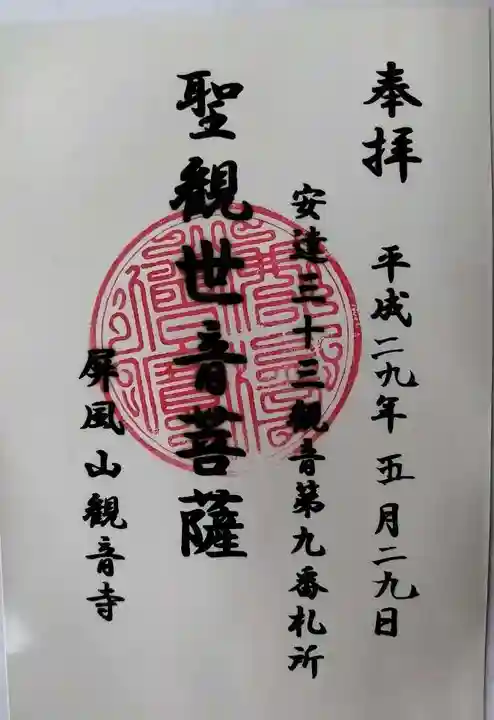 奉拝 平成二九年五月二九日
安達三十三観音第九番札所
聖観世音菩薩
屏風山観音寺